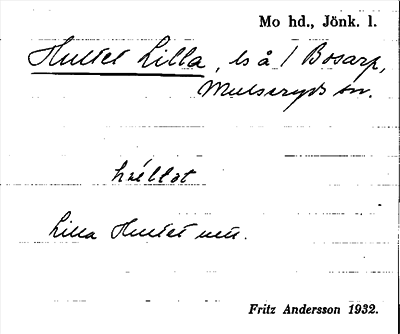 Mo hd., Jönk. l.
Hultet Lilla, ls å / Bosarp,
Mulseryds sn.
hɷ́llət
Lilla Hultet utt.
Fritz Andersson 1932.